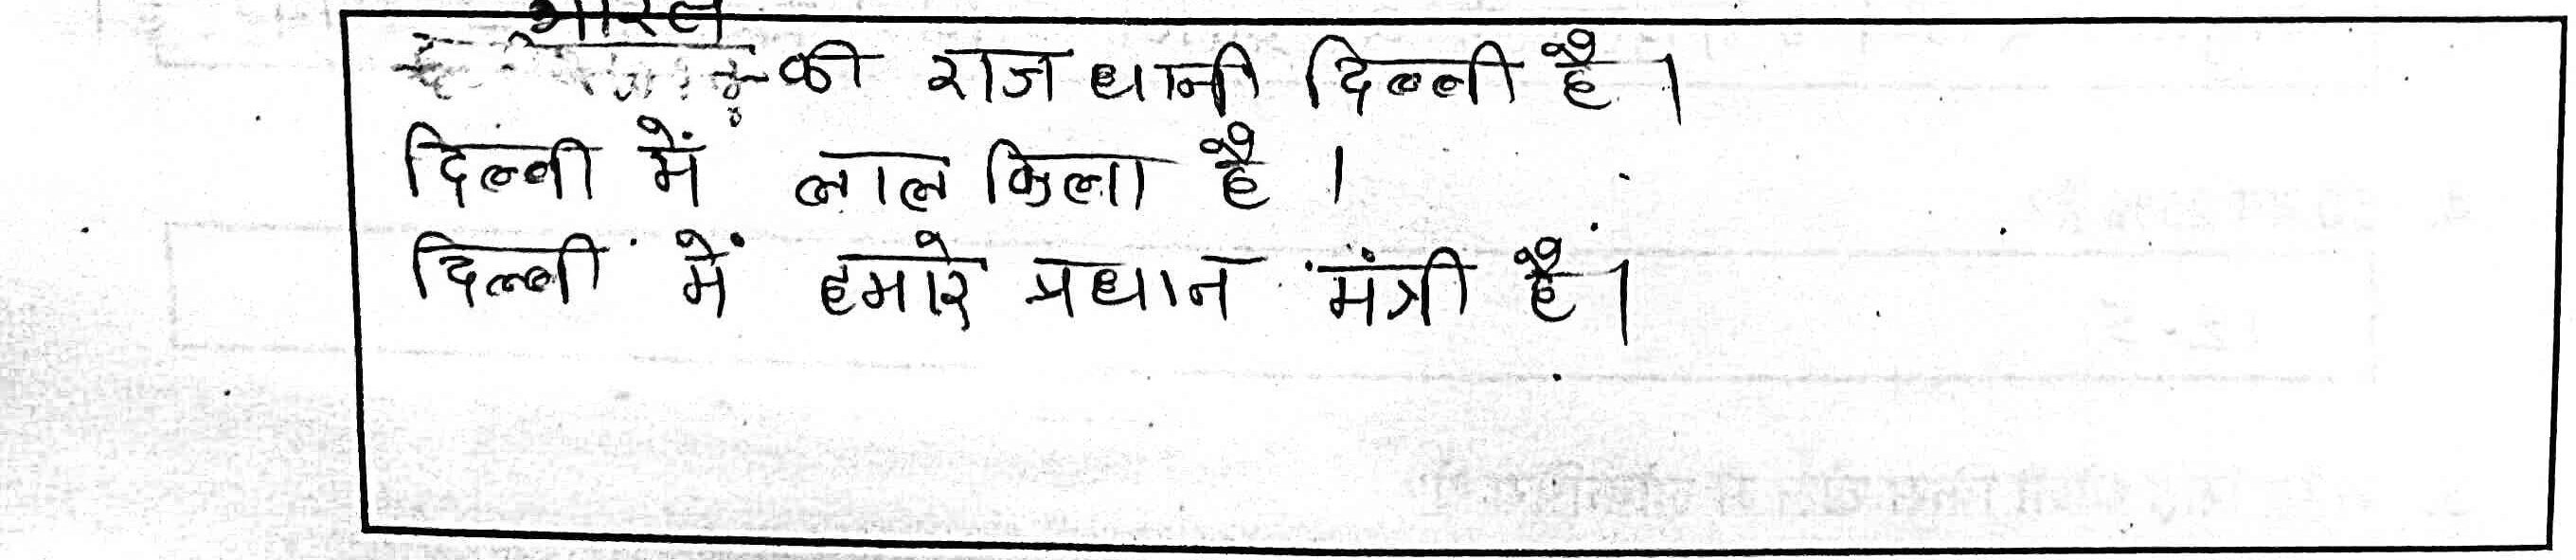 भारत
की राज धानी दिल्ली है।
दिल्ली में लाल किला है।
दिल्ली में हमारे प्रधान मंत्री है।